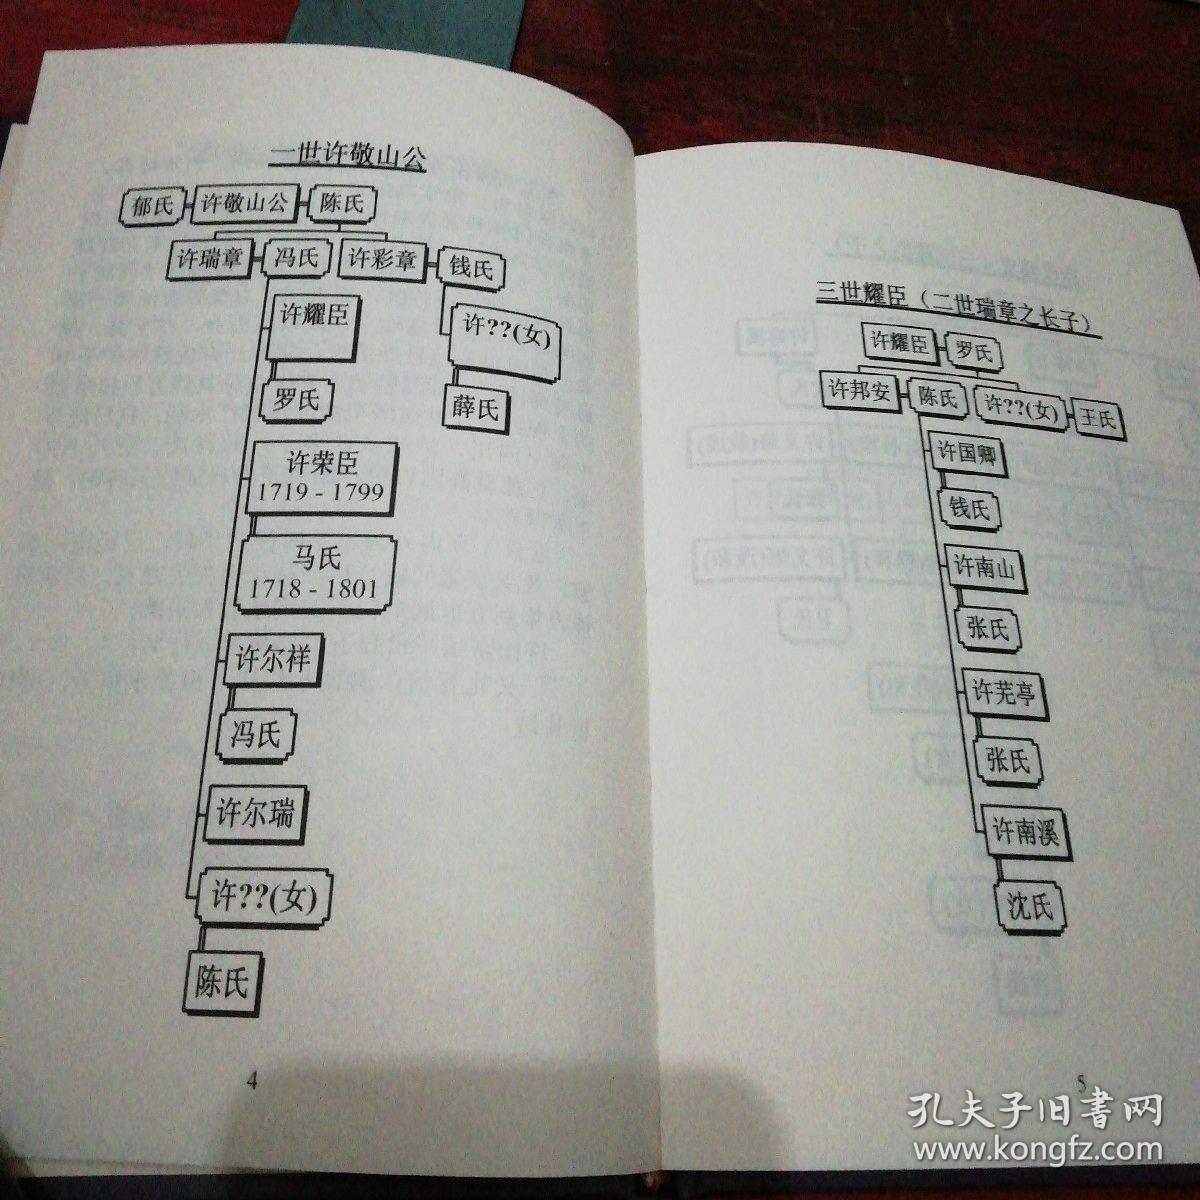 一世许敬山公
郁氏 许敬山公 陈氏
许瑞章 冯氏 许彩章 钱氏
许耀臣
许??(女)
罗氏
薛氏
许荣臣
1719 - 1799
马氏
1718 - 1801
许尔祥
冯氏
许尔瑞
许??(女)
陈氏
4
三世耀臣（二世瑞章之长子）
许耀臣 罗氏
许邦安 陈氏 许??(女) 王氏
许国卿
钱氏
许南山
张氏
许芜亭
张氏
许南溪
沈氏
5
孔夫子旧书网
www.kongfz.com